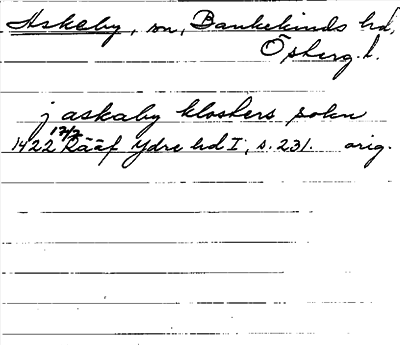 Askeby, sn, Bankekinds hd,
Österg. l.
j askaby klosters sokn
1422 17/7 Rääf Ydre hd I, s. 231. orig.